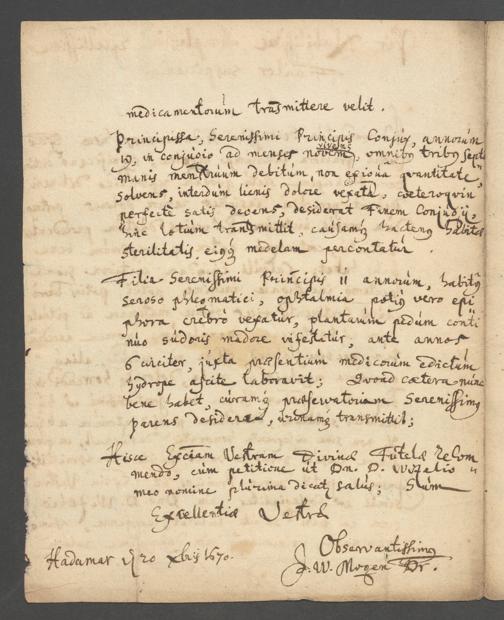 medicamentorum transmittere velit.
Principissa, Serenissimi Principis Conjux, annorum
19, in conjugio ad menses novem vivens, omnibus tribus septi
manis menstruum debitum, non exigua quantitate,
solvens, interdum lienis dolore vexata, coeteroquin
perfecte satis degens, desiderat Finem Conjugii,
hinc lotium transmittit, causamq hactenus habitae
sterilitatis, eiq medelam percontatur.
Filia Serenissimi Principis 11 annorum, habitus
seroso phlegmatici, ophtalmia potius vero epi
phora crebro vexatur, plantarum pedum conti
nuo sudoris madore infestatur, ante annos
6 circiter, juxta praesentium medicorum edictum
hydrope ascite laboravit; Quoad caetera nunc
bene habet, curamq praeservatoriam Serenissimus
parens desiderat, urinamq transmittit;
Hisce Excell̃am Vestram Divinae Tutelae recom
mendo, cum petitione ut Dn. D.
meo nomine plurima dicat salus; Sum
Excellentiae Vestrae
Observantissimus
Hadamar 20 xbris 1670.
J. W. Mogen Dr.